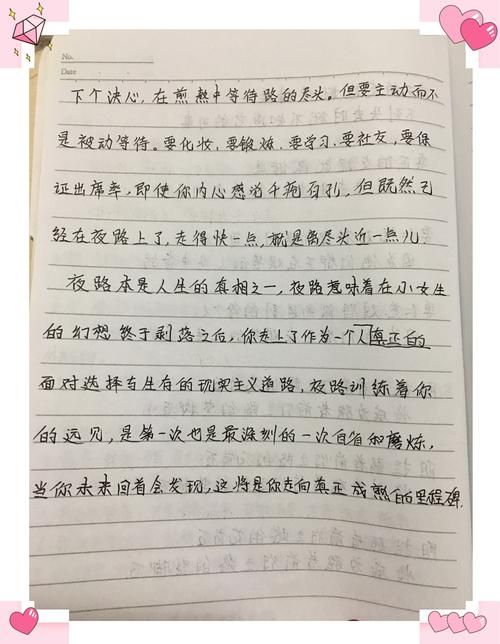 No.
Date
下个决心，在煎熬中等待路的尽头。但要主动而不
是被动等待。要化妆，要锻炼，要学习，要社交，要保
证出席率，即使你内心感觉千疮百孔，但既然已
经在夜路上了，走得快一点，就是离尽头近一点儿
夜路本是人生的真相之一，夜路意味着在小女生
的幻想终于剥落之后，你走上了作为一个人真正的
面对选择与生存的现实主义道路，夜路训练着你
的远见，是第一次也是最深刻的一次自省和磨炼，
当你未来回首会发现，这将是你走向真正成熟的里程碑。